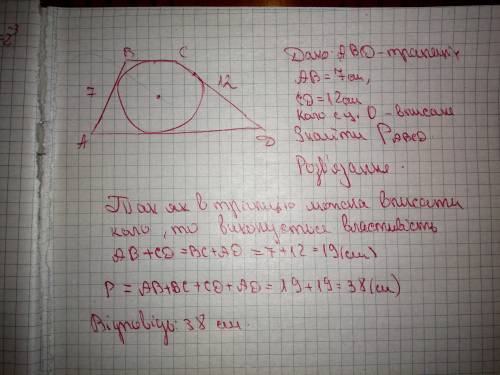 B C
7 12
A D
Дано: ABD - трапеція
AB = 7см,
CD = 12см
Коло з ц. O - вписане
Знайти P ABCD
Розв'язання.
Так як в трапецію можна вписати
коло, то виконується властивість
AB + CD = BC + AD = 7 + 12 = 19 (см)
P = AB + BC + CD + AD = 19 + 19 = 38 (см)
Відповідь: 38 см.